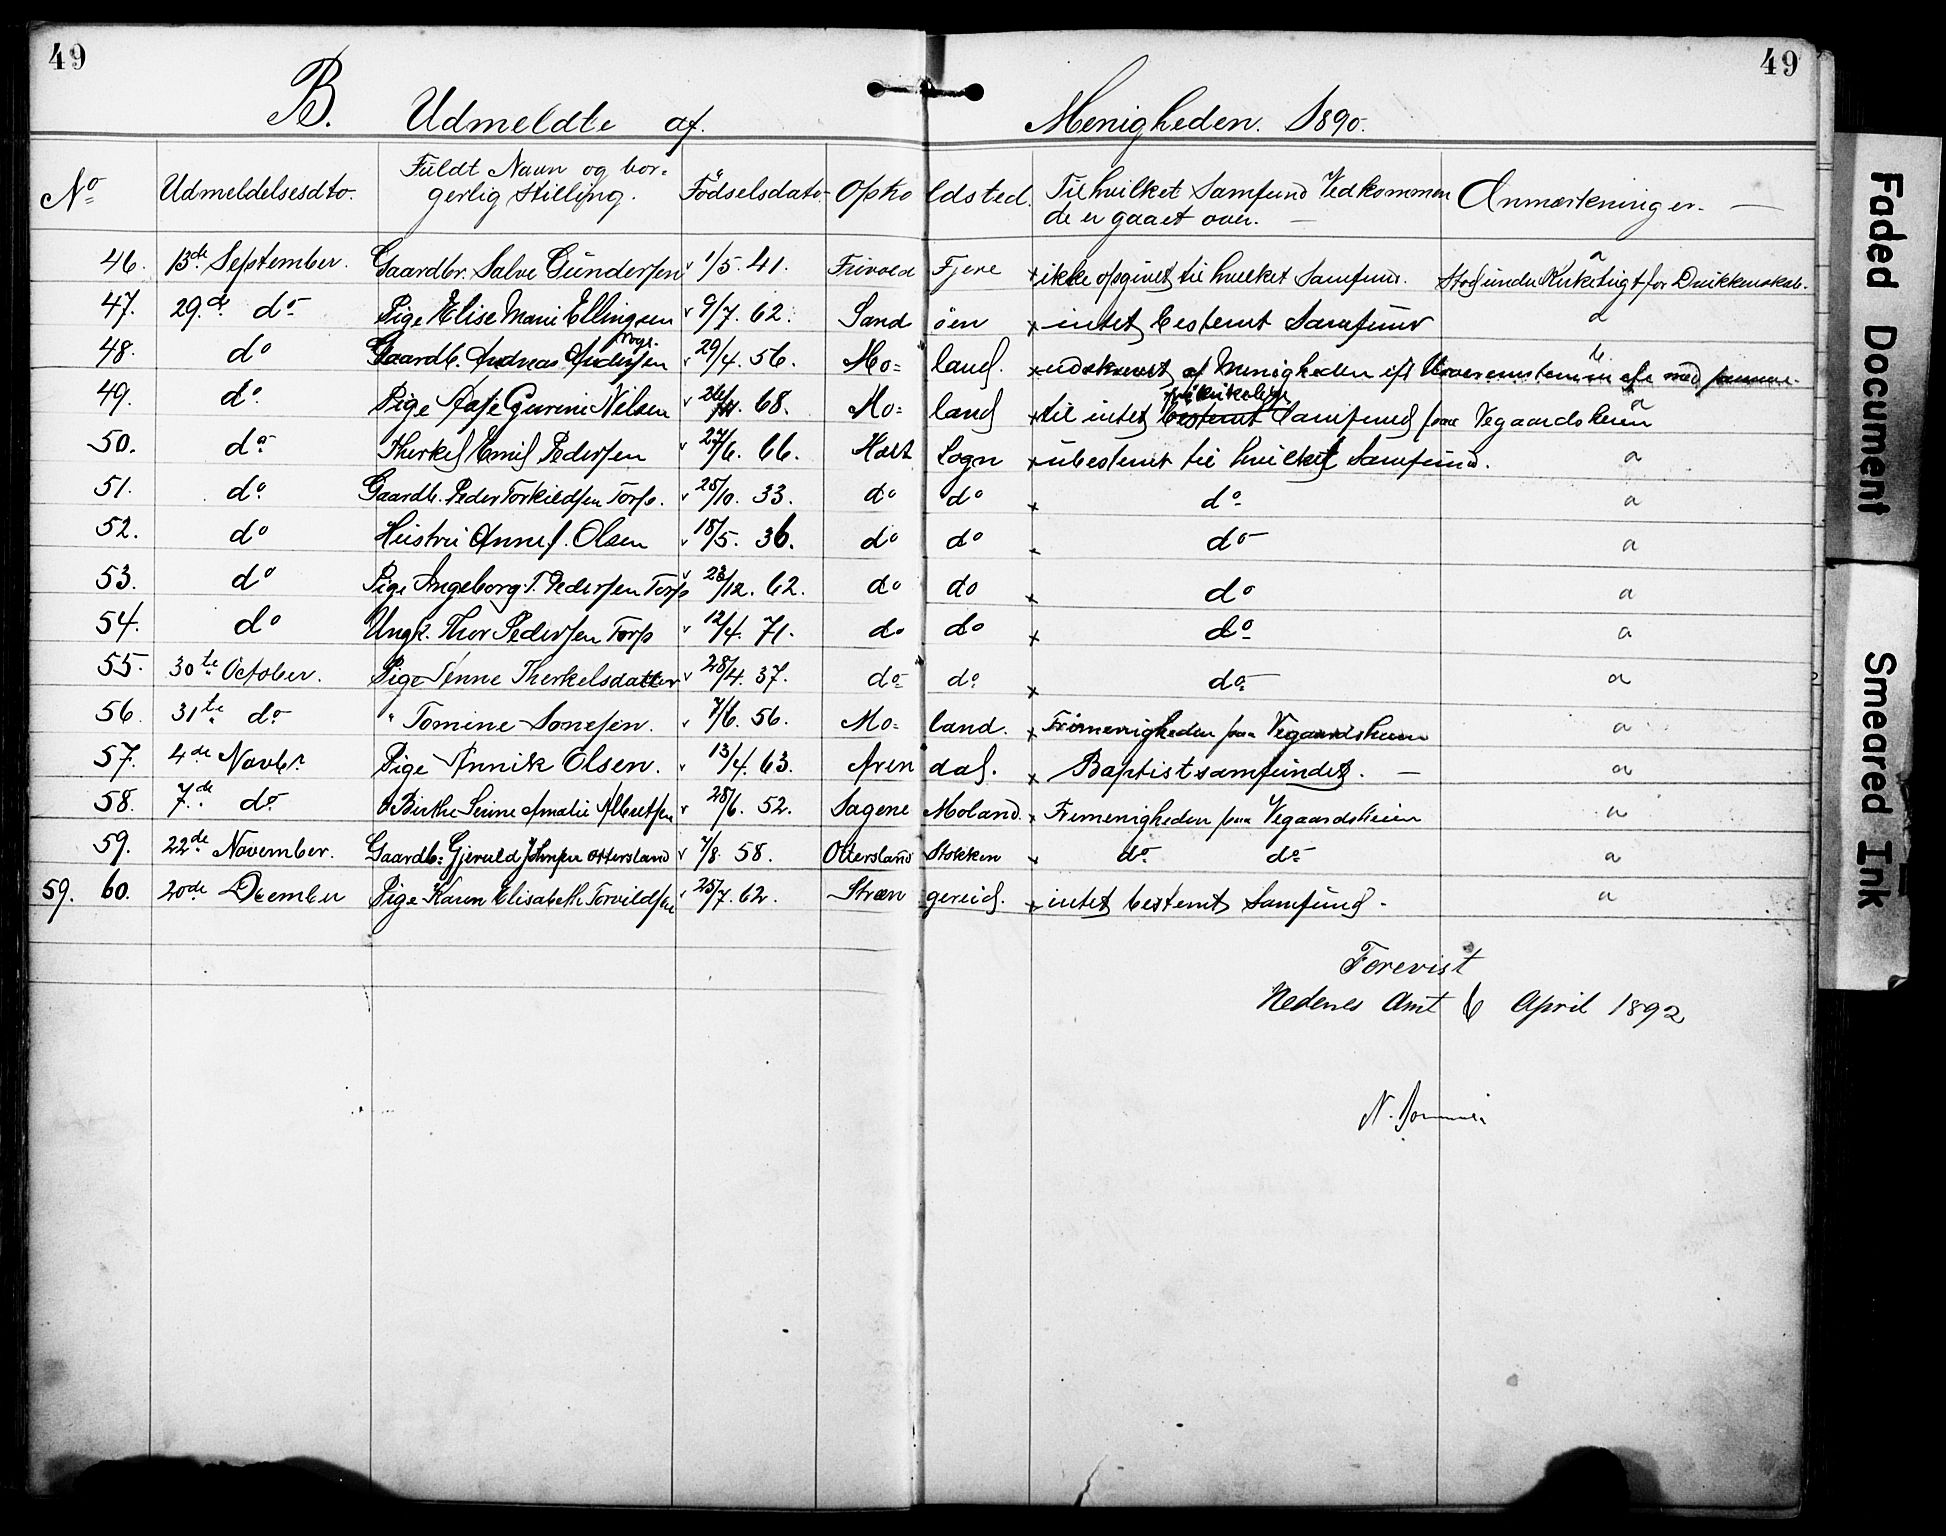 49
49
B. Udmeldte af Menigheden. 1890.
No Udmeldelsesdto. Fuldt Navn og bor- gerlig Stilling. Födselsdato Opholdsted. Til hvilket Samfund Vedkommen de er gaaet over. — Anmærkninger. —
46. 13de September. Gaardbr. Salve Gundersen 1/5. 41. Fjere x ikke opgivet til hvilket Samfund. a Stod under Kirketugt for Drikkenskab.
47. 29de do Pige Elise Marie Ellingsen 9/7. 62. Sandöen x intet bestemt Samfund a
48. do Gaardb. Andreas Andersen 29/4. 56. Mo= land. x udskrevet af Menigheden b.
49. do. Pige Gurine Nilsen 68. Mo= land x til intet frikirkelige bestemt Samfund fraa Vegaardsheien a
50. do Therkel Emil Pedersen 27/6. 66. Holt Sogn x ubestemt til hvilket Samfund. a
51. do Gaardb. Peder Torkildsen Torp. 25/10. 33. do do x do a
52. do Hustru Anne J. Olsen 18/5. 36. do do do a
53. do Pige Ingeborg T. Pedersen Torp 23/12. 62. do do x do a
54. do Ungk. Thor Pedersen Torp 12/4. 71. do do x do a
55. 30te October. Pige Tenne Therkelsdatter 28/4. 37. do do x do a
56. 31te do " Tomine Sonesen. 7/6. 56. Mo= land. x Frimenigheden fraa Vegaardsheien a
57. 4de Novbr. Pige Annik Olsen. 13/4. 63. Arendal. x Baptistsamfundet. — a
58. 7de do Birthe Serine Amalie Albertsen 28/6. 52. Sagene Moland. x Frimenigheden fraa Vegaardsheien a
59. 22de November. Gaardb: Gjeruld Johnsen Ottersland 7/8. 58. Ottersland Stokken x do do a
59. 60. 20de December Pige Karen Elisabeth Torvildsen 25/7. 62. Strængereid. x intet bestemt Samfund. a
Forevist
Nedenes Amt 6 April 1892
N.
Faded Document
Smeared Ink